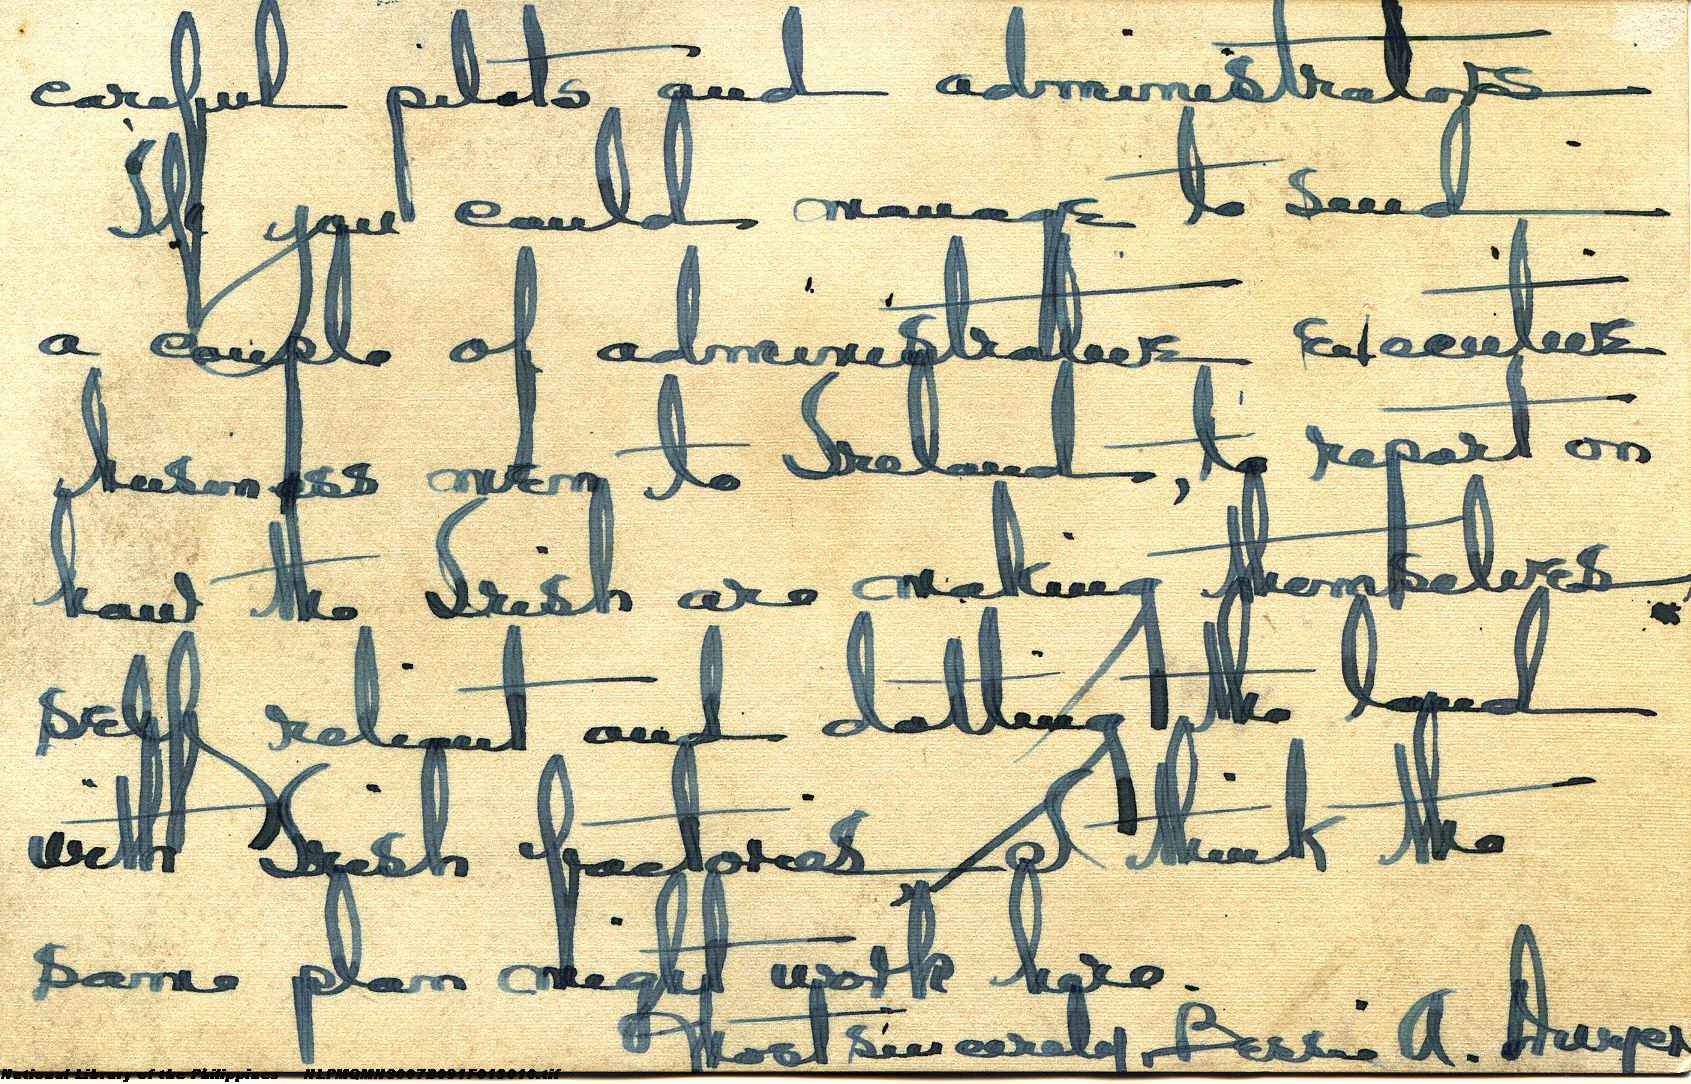 careful pilots and administrators
If you could manage to send
a couple of administrative executive
business men to Ireland, to report on
how the Irish are making themselves
self reliant and dotting the land
with Irish factories, I think the
same plan might work here.
Most sincerely, Bessie A. Dwyer
National Library of the Philippines